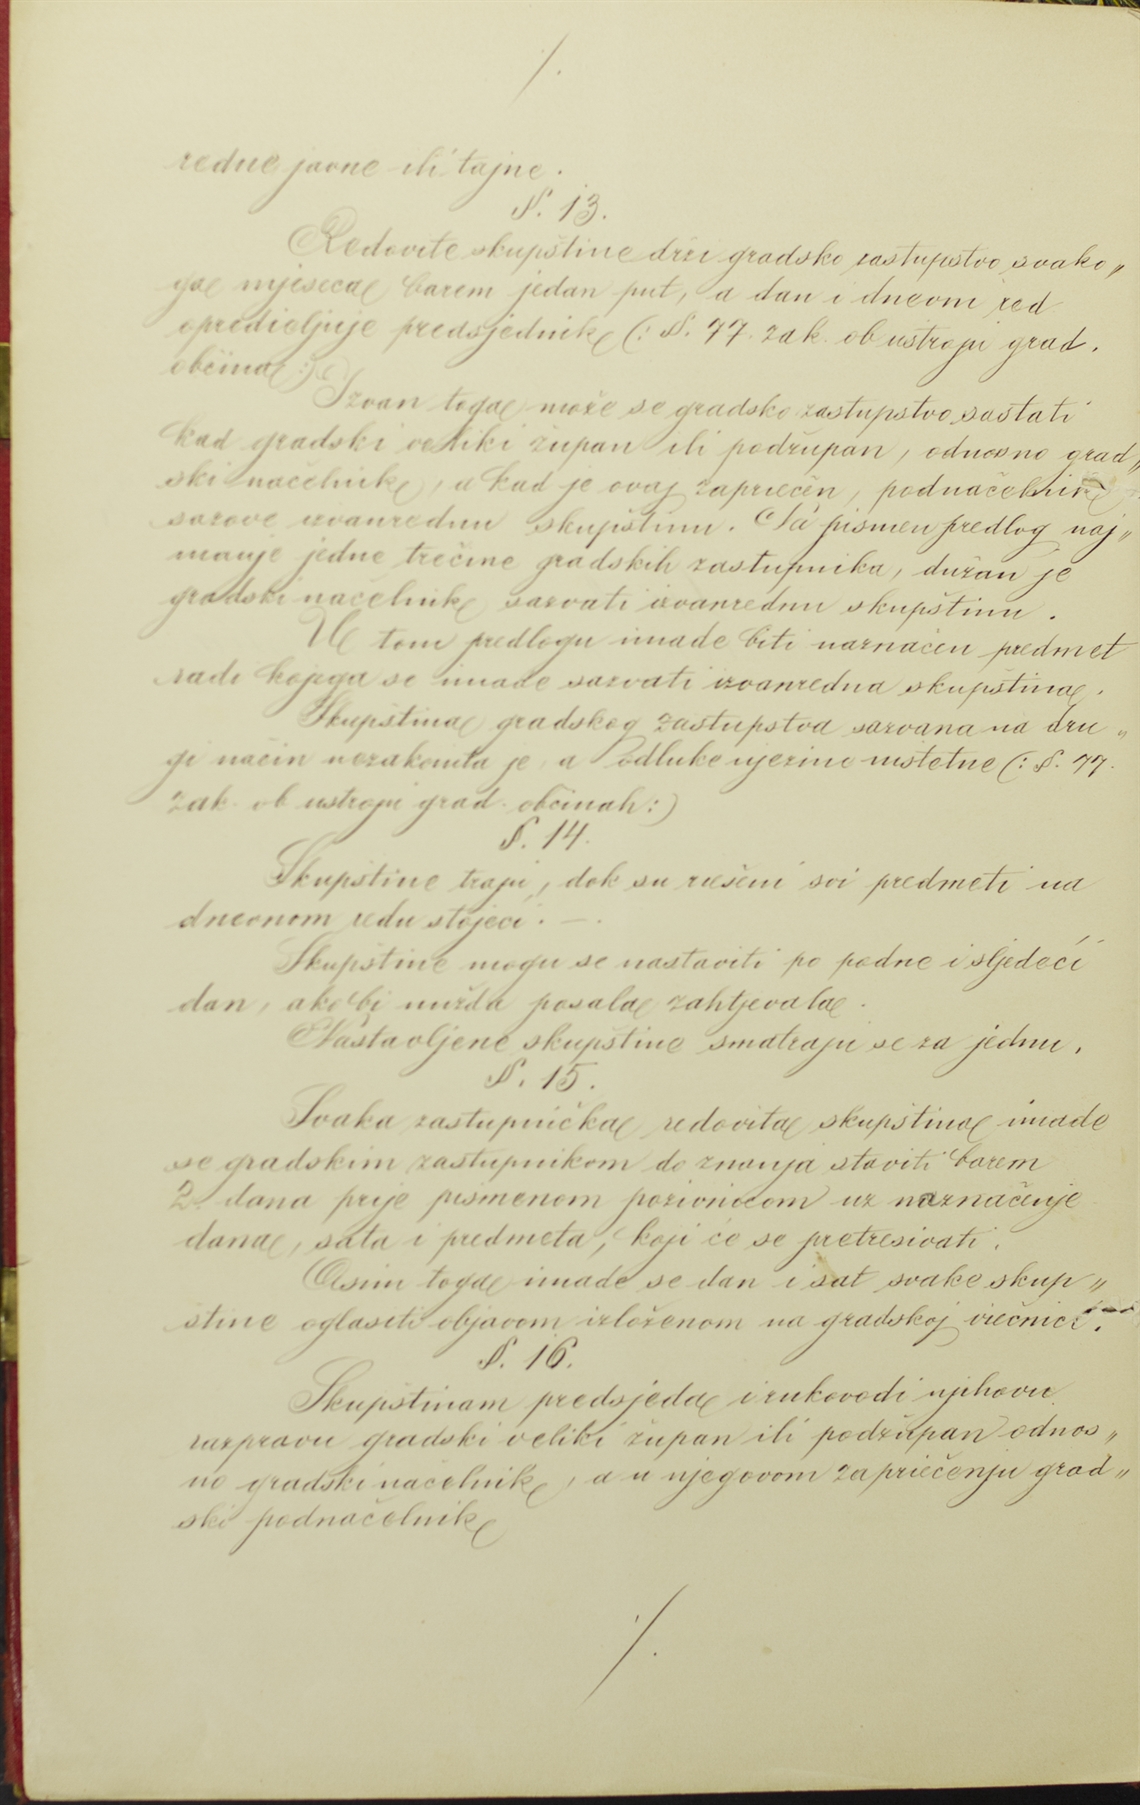 ./.
redne javne ili tajne.
§. 13.
Redovite skupštine drži gradsko zastupstvo svako„
ga mjeseca barem jedan put, a dan i dnevni red
opredieljuje predsjednik (: §. 77. zak. ob ustroju grad.
občina :)
Izvan toga može se gradsko zastupstvo sastati
kad gradski veliki župan ili podžupan, odnosno grad„
ski načelnik, a kad je ovaj zapriečen, podnačelnik
sazove izvanrednu skupštinu. Na pismen predlog naj„
manje jedne trečine gradskih zastupnika, dužan je
gradski načelnik sazvati izvanrednu skupštinu.
U tom predlogu imade biti naznačen predmet
radi kojega se imade sazvati izvanredna skupština.
Skupština gradskog zastupstva sazvana na dru„
gi način nezakonita je a odluke njezine ništetne (: §. 77.
zak. ob ustroju grad. občinah :)
§. 14.
Skupštine traju, dok su riešeni svi predmeti na
dnevnom redu stojeći. —.
Skupštine mogu se nastaviti po podne i sljedeći
dan, ako bi nužda posala zahtjevala.
Nastavljene skupštine smatraju se za jednu.
§. 15.
Svaka zastupnička redovita skupština imade
se gradskim zastupnikom do znanja staviti barem
2 dana prije pismenom pozivnicom uz naznačenje
dana, sata i predmeta, koji će se pretresivati.
Osim toga imade se dan i sat svake skup„
štine oglasiti objavom izloženom na gradskoj viečnici.
§. 16.
Skupštinam predsjeda i rukovodi njihovu
razpravu gradski veliki župan ili podžupan odnos„
no gradski načelnik, a u njegovom zapriečenju grad„
ski podnačelnik
./.